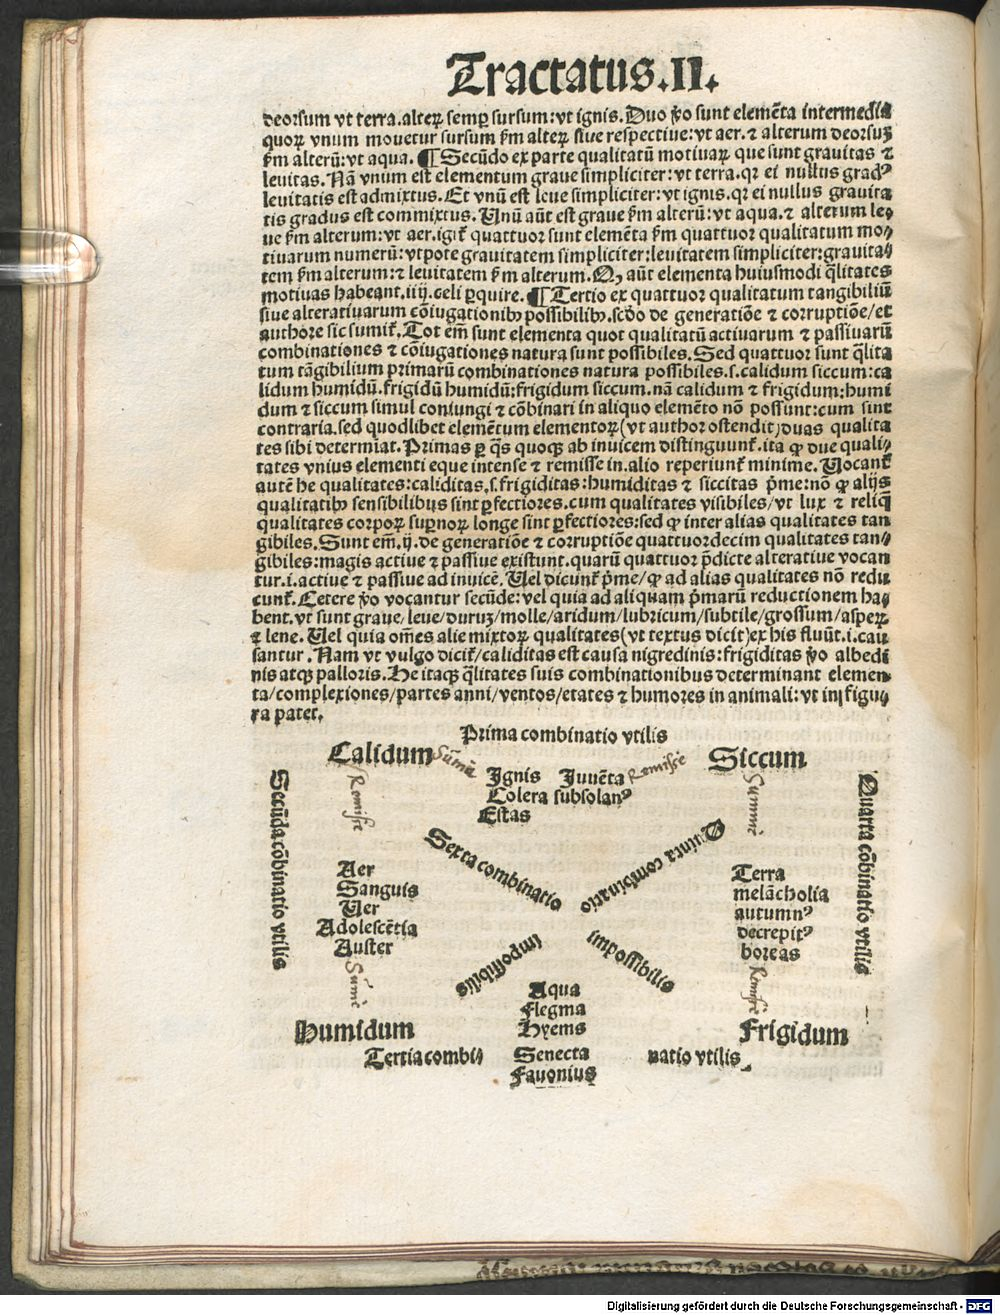 Tractatus.II.
deorsum vt terra.alteꝝ semꝑ sursum:vt ignis.Duo ꝟo sunt elemēta intermedia
quoꝝ vnum mouetur sursum ẜm alteꝝ siue respectiue:vt aer.⁊ alterum deorsuꝫ
ẜm alterū:vt aqua.¶Secūdo ex parte qualitatū motiuaꝝ que sunt grauitas ⁊
leuitas.Nā vnum est elementum graue simpliciter:vt terra.qꝛ ei nullus gradꝰ
leuitatis est admixtus.Et vnū est leue simpliciter:vt ignis.qꝛ ei nullus grauita
tis gradus est commixtus.Unū aūt est graue ẜm alterū:vt aqua.⁊ alterum le⸗
ue ẜm alterum:vt aer.igit̄ quattuor sunt elemēta ẜm quattuor qualitatum mo⸗
tiuarum numerū:vtpote grauitatem simpliciter:leuitatem simpliciter:grauita⸗
tem ẜm alterum:⁊ leuitatem ẜm alterum.Qꝫ aūt elementa huiusmodi q̄litates
motiuas habeant.iiij.celi ꝑquire.¶Tertio ex quattuor qualitatum tangibiliū
siue alteratiuarum cōiugationibꝰ possibilibꝰ.scdo de generatiōe ⁊ corruptiōe/et
authore sic sumit̄.Tot em̄ sunt elementa quot qualitatū actiuarum ⁊ passiuarū
combinationes ⁊ cōiugationes natura sunt possibiles.Sed quattuor sunt q̄lita
tum tāgibilium primarū combinationes natura possibiles.s.calidum siccum:ca
lidum humidū.frigidū humidū:frigidum siccum.nā calidum ⁊ frigidum:humi
dum ⁊ siccum simul coniungi ⁊ cōbinari in aliquo elemēto nō possunt:cum sint
contraria.sed quodlibet elemētum elementoꝝ(vt author ostendit)duas qualita
tes sibi determīat.Primas ꝑ q̄s quoqꝫ ab inuicem distinguunt̄.ita ꝙ due quali⸗
tates vnius elementi eque intense ⁊ remisse in.alio reperiunt̄ minime.Uocant̄
autē he qualitates:caliditas.s.frigiditas:humiditas ⁊ siccitas pme:nō ꝙ alijs
qualitatibꝰ sensibilibus sint ꝑfectiores.cum qualitates visibiles/vt lux ⁊ reliq̄
qualitates corpoꝝ supnoꝝ longe sint ꝑfectiores:sed ꝙ inter alias qualitates tan
gibiles.Sunt em̄.ij.de generatiōe ⁊ corruptiōe quattuordecim qualitates tan⸗
gibiles:magis actiue ⁊ passiue existunt.quarū quattuor p̄dicte alteratiue vocan
tur.i.actiue ⁊ passiue ad inuicē.Uel dicunt̄ pme/ꝙ ad alias qualitates nō redu
cunt̄.Cetere ꝟo vocantur secūde:vel quia ad aliquam pmarū reductionem ha⸗
bent.vt sunt graue/leue/duruꝫ/molle/aridum/lubricum/subtile/grossum/aspeꝝ
⁊ lene.Uel quia om̄es alie mixtoꝝ qualitates(vt textus dicit)ex his fluūt.i.cau
santur.Nam vt vulgo dicit̄/caliditas est causa nigredinis:frigiditas ꝟo albedi
nis atqꝫ palloris.He itaqꝫ q̄litates suis combinationibus determinant elemen⸗
ta/complexiones/partes anni/ventos/etates ⁊ humores in animali:vt in figu⸗
ra patet.
Prima combinatio vtilis
Calidum
Sum̄e
Remisse
Siccum
Ignis Iuuēta
Colera subsolanꝰ
Estas
Remisse
Summe
Secūda cōbinatio vtilis
Quarta cōbinatio vtilis
Sexta combinatio
Quinta combinatio
Aer
Sanguis
Uer
Adolescētia
Auster
Terra
melācholia
autumnꝰ
decrepitꝰ
boreas
impossibilis
impossibilis
Sūme
Remisse
Aqua
Flegma
Hyems
Humidum
Frigidum
Tertia combi⸗
Senecta
natio vtilis.
Fauonius
Digitalisierung gefördert durch die Deutsche Forschungsgemeinschaft - DFG